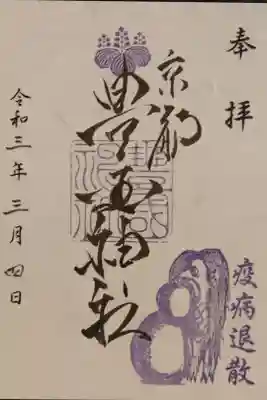 奉拝
京都
豊国神社
疫病退散
令和三年三月四日